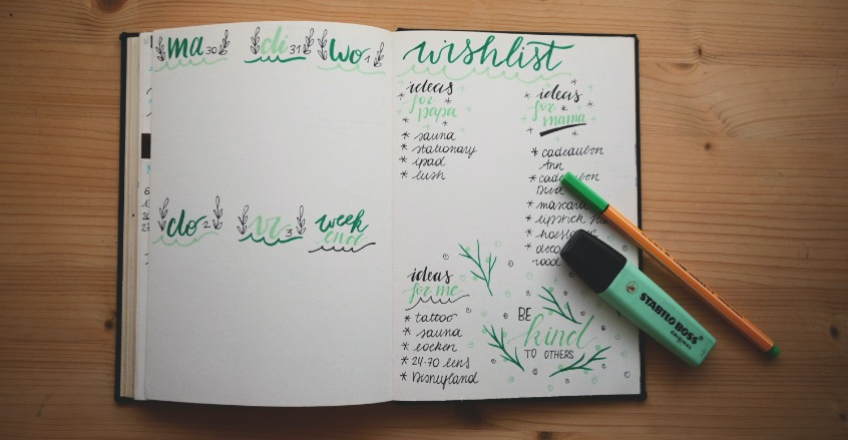 ma 30
di 31
wo 1
do 2
vr 3
week
end
wishlist
ideas
for
papa
* sauna
* stationary
* ipad
* lush
ideas
for
mama
* cadeaubon
Ann
* mascara
* lipstick
* deco
ideas
for me
* tattoo
* sauna
* boeken
* 24-70 lens
* Disneyland
BE
kind
TO OTHERS
STABILO BOSS
original